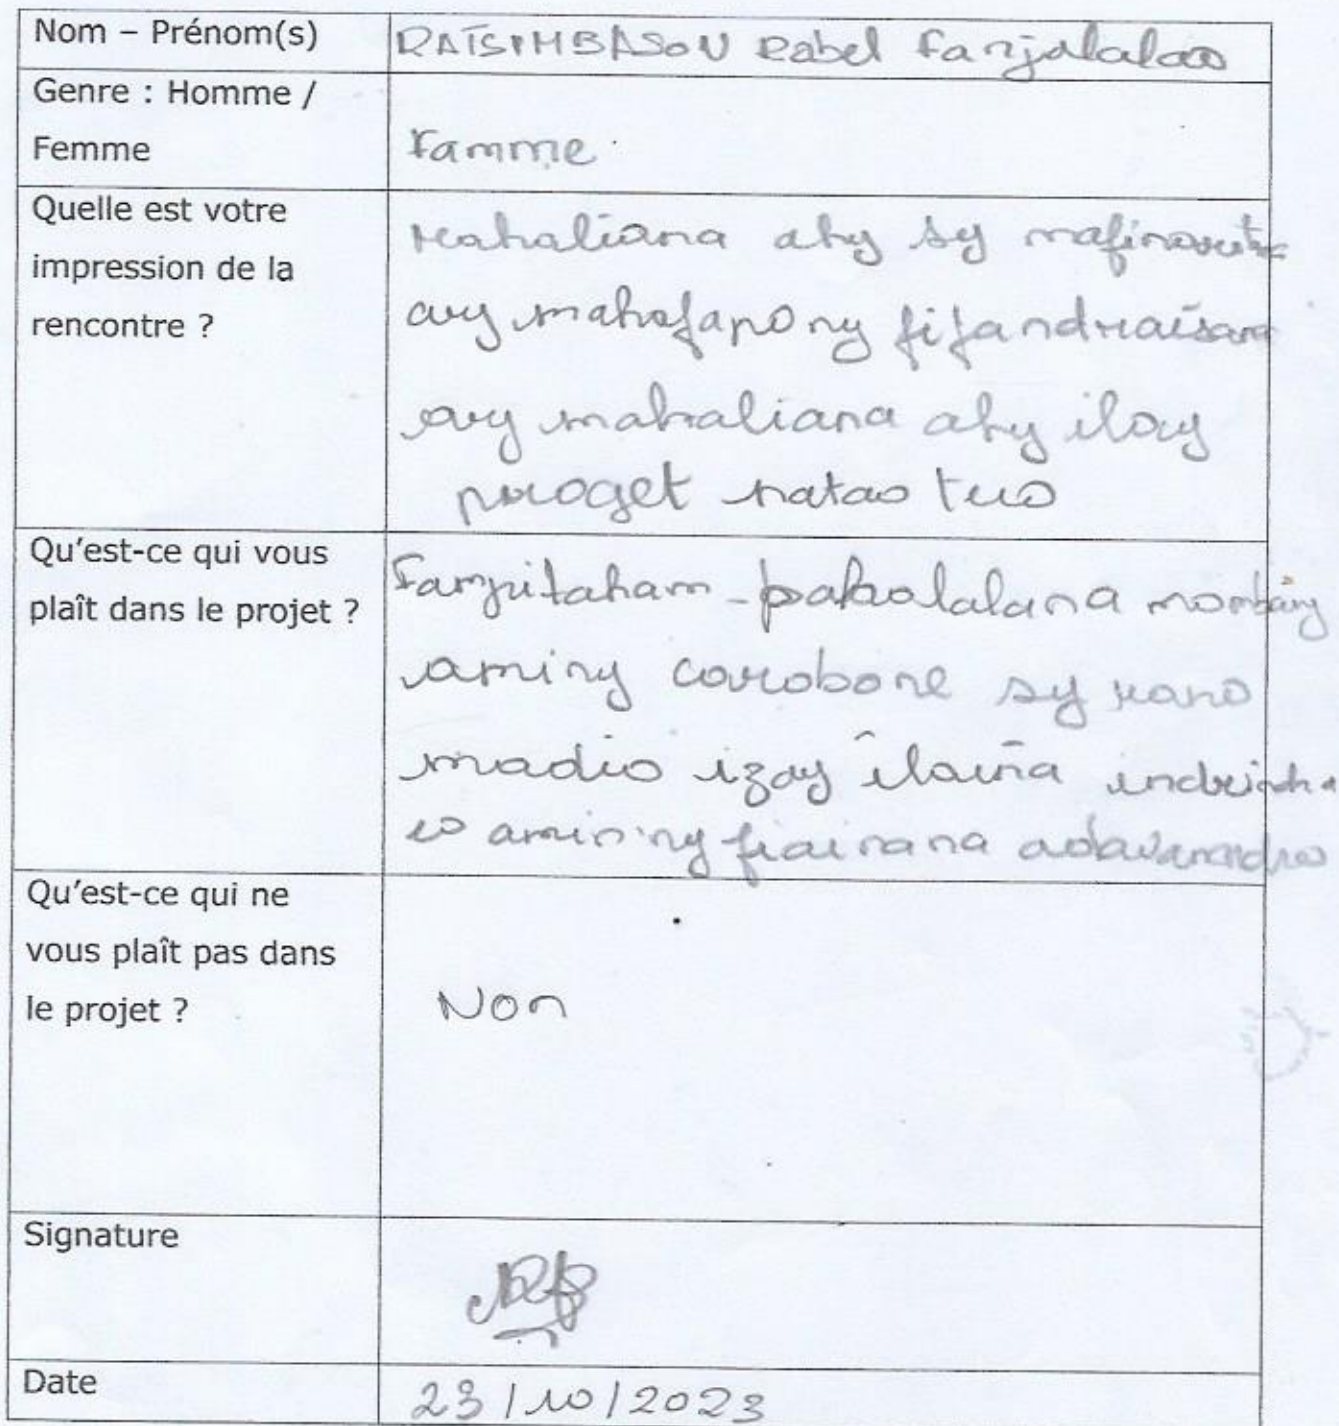 Nom – Prénom(s)
RATSIMBASON Rabel Fanjalalao
Genre : Homme /
Femme
Famme
Quelle est votre
impression de la
rencontre ?
Mahaliana ahy sy mafinaritra
ary mahafapo ny fifandraisana
ary mahaliana ahy ilay
proget natao teo
Qu'est-ce qui vous
plaît dans le projet ?
Fampitaham-pahalalana mombany
aminy carobone sy rano
madio izay ilaina indrindra
eo amin'ny fiainana
Qu'est-ce qui ne
vous plaît pas dans
le projet ?
Non
Signature
Date
23/10/2023